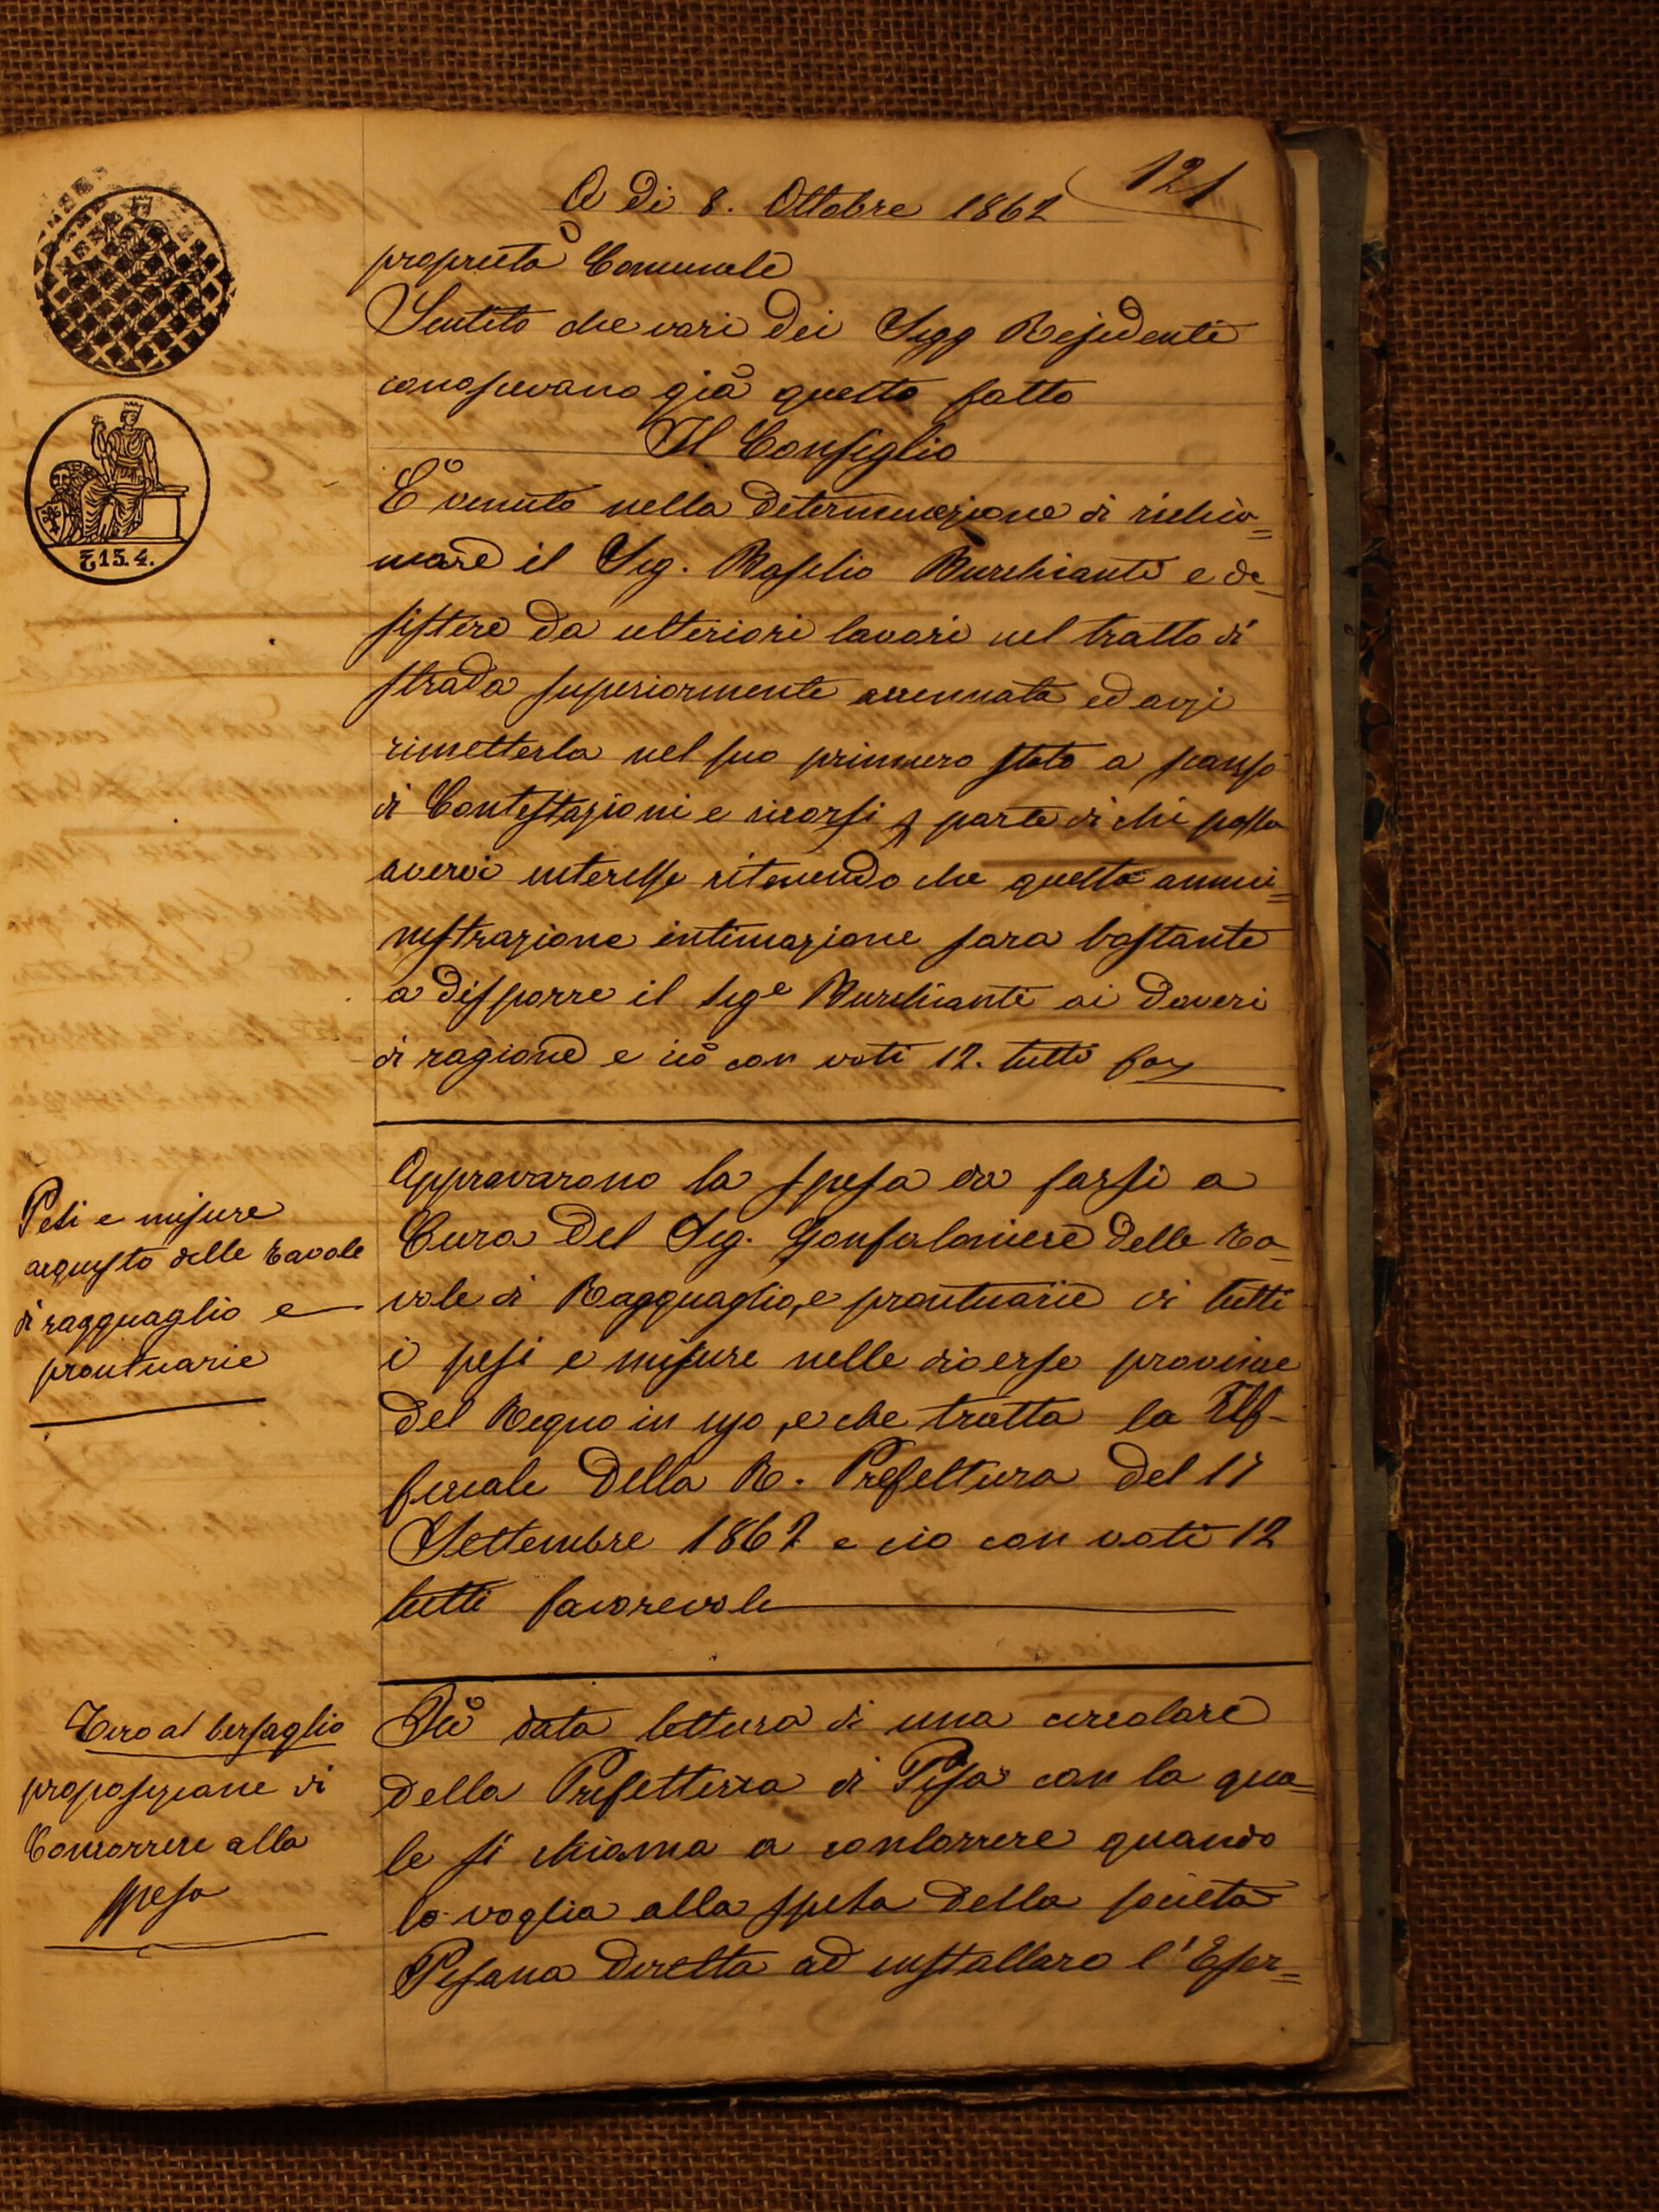 121
A Di 8. Ottobre 1862
proprietà Comunale
Sentito che vari dei Sigg Residenti
conoscevano già questo fatto
Il Consiglio
È venuto nella determinazione di richia=
mare il Sig. Basilio Burchianti e de
sistere da ulteriori lavori nel tratto di
strada superiormente accennata ed anzi
rimetterla nel suo primiero stato a scanso
di Contestazioni e ricorsi parte di chi possa
avervi interesse ritenendo che questa ammi=
nistrazione intimazione sara bastante
a disporre il Sige Burchianti ai Doveri
di ragione e ciò con voti 12. tutti fav
Pesi e misure
acquisto delle tavole
di ragguaglio e
prontuarie
Approvarono la spesa da farsi a
Cura Del Sig. Gonfaloniere delle ta
vole di Ragguaglio, e prontuarie di tutti
i pesi e misure nelle diverse provincie
del Regno in uso, e che tratta la Uf-
ficiale Della R. Prefettura del 17
Settembre 1862 e cio con voti 12
tutti favorevole
Tiro al bersaglio
proposizione di
Concorrere alla
spesa
Fù data lettura di una circolare
della Prefettura di Pisa con la qua
le si chiama a concorrere quando
lo voglia alla spesa della società
Pisana diretta ad installare l'Eser=
£15.4.